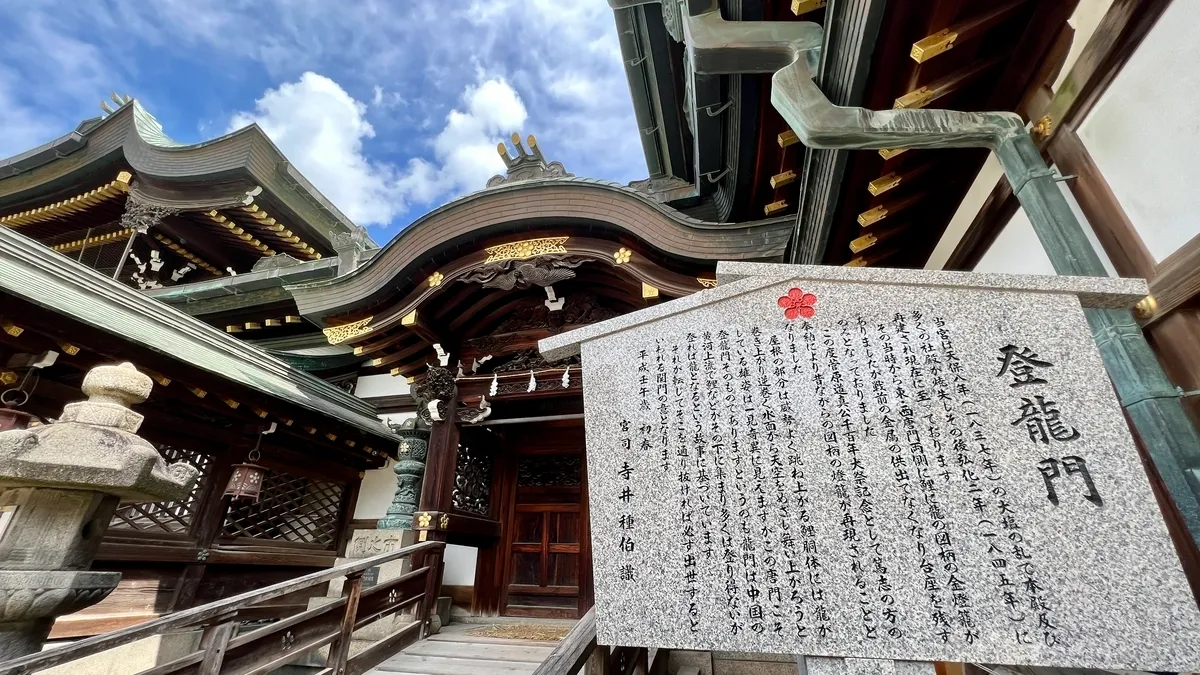 登龍門
当宮は天保八年（一八三七年）の大塩の乱で本殿及び
多くの社殿が焼失しその後弘化二年（一八四五年）に
再建され現在に至っております
その当時から東・西唐門両側に鯉に龍の図柄の金燈籠が
ありましたが戦前の金属の供出でなくなり台座を残す
のみとなっておりました
この度菅原道真公千百年大祭記念として篤志の方の
奉納により昔からの図柄の燈籠が再現されることと
なりました
屋根の部分は威勢よく跳ね上がる鯉胴体には龍が
巻き上り逆巻く水面から天空をめざし舞い上がろうと
している雄姿は一見奇異に見えますがこの唐門こそ
登龍門そのものでありますというのも龍門は中国の
黄河上流で鯉などがその下に集まり多くは登り得ないが
登れば龍となるという故事に基づいています
それが転じてそこを通り抜ければ必ず出世すると
いわれる関門の意となります
平成壬午歳 初春
宮司 寺井種伯 識